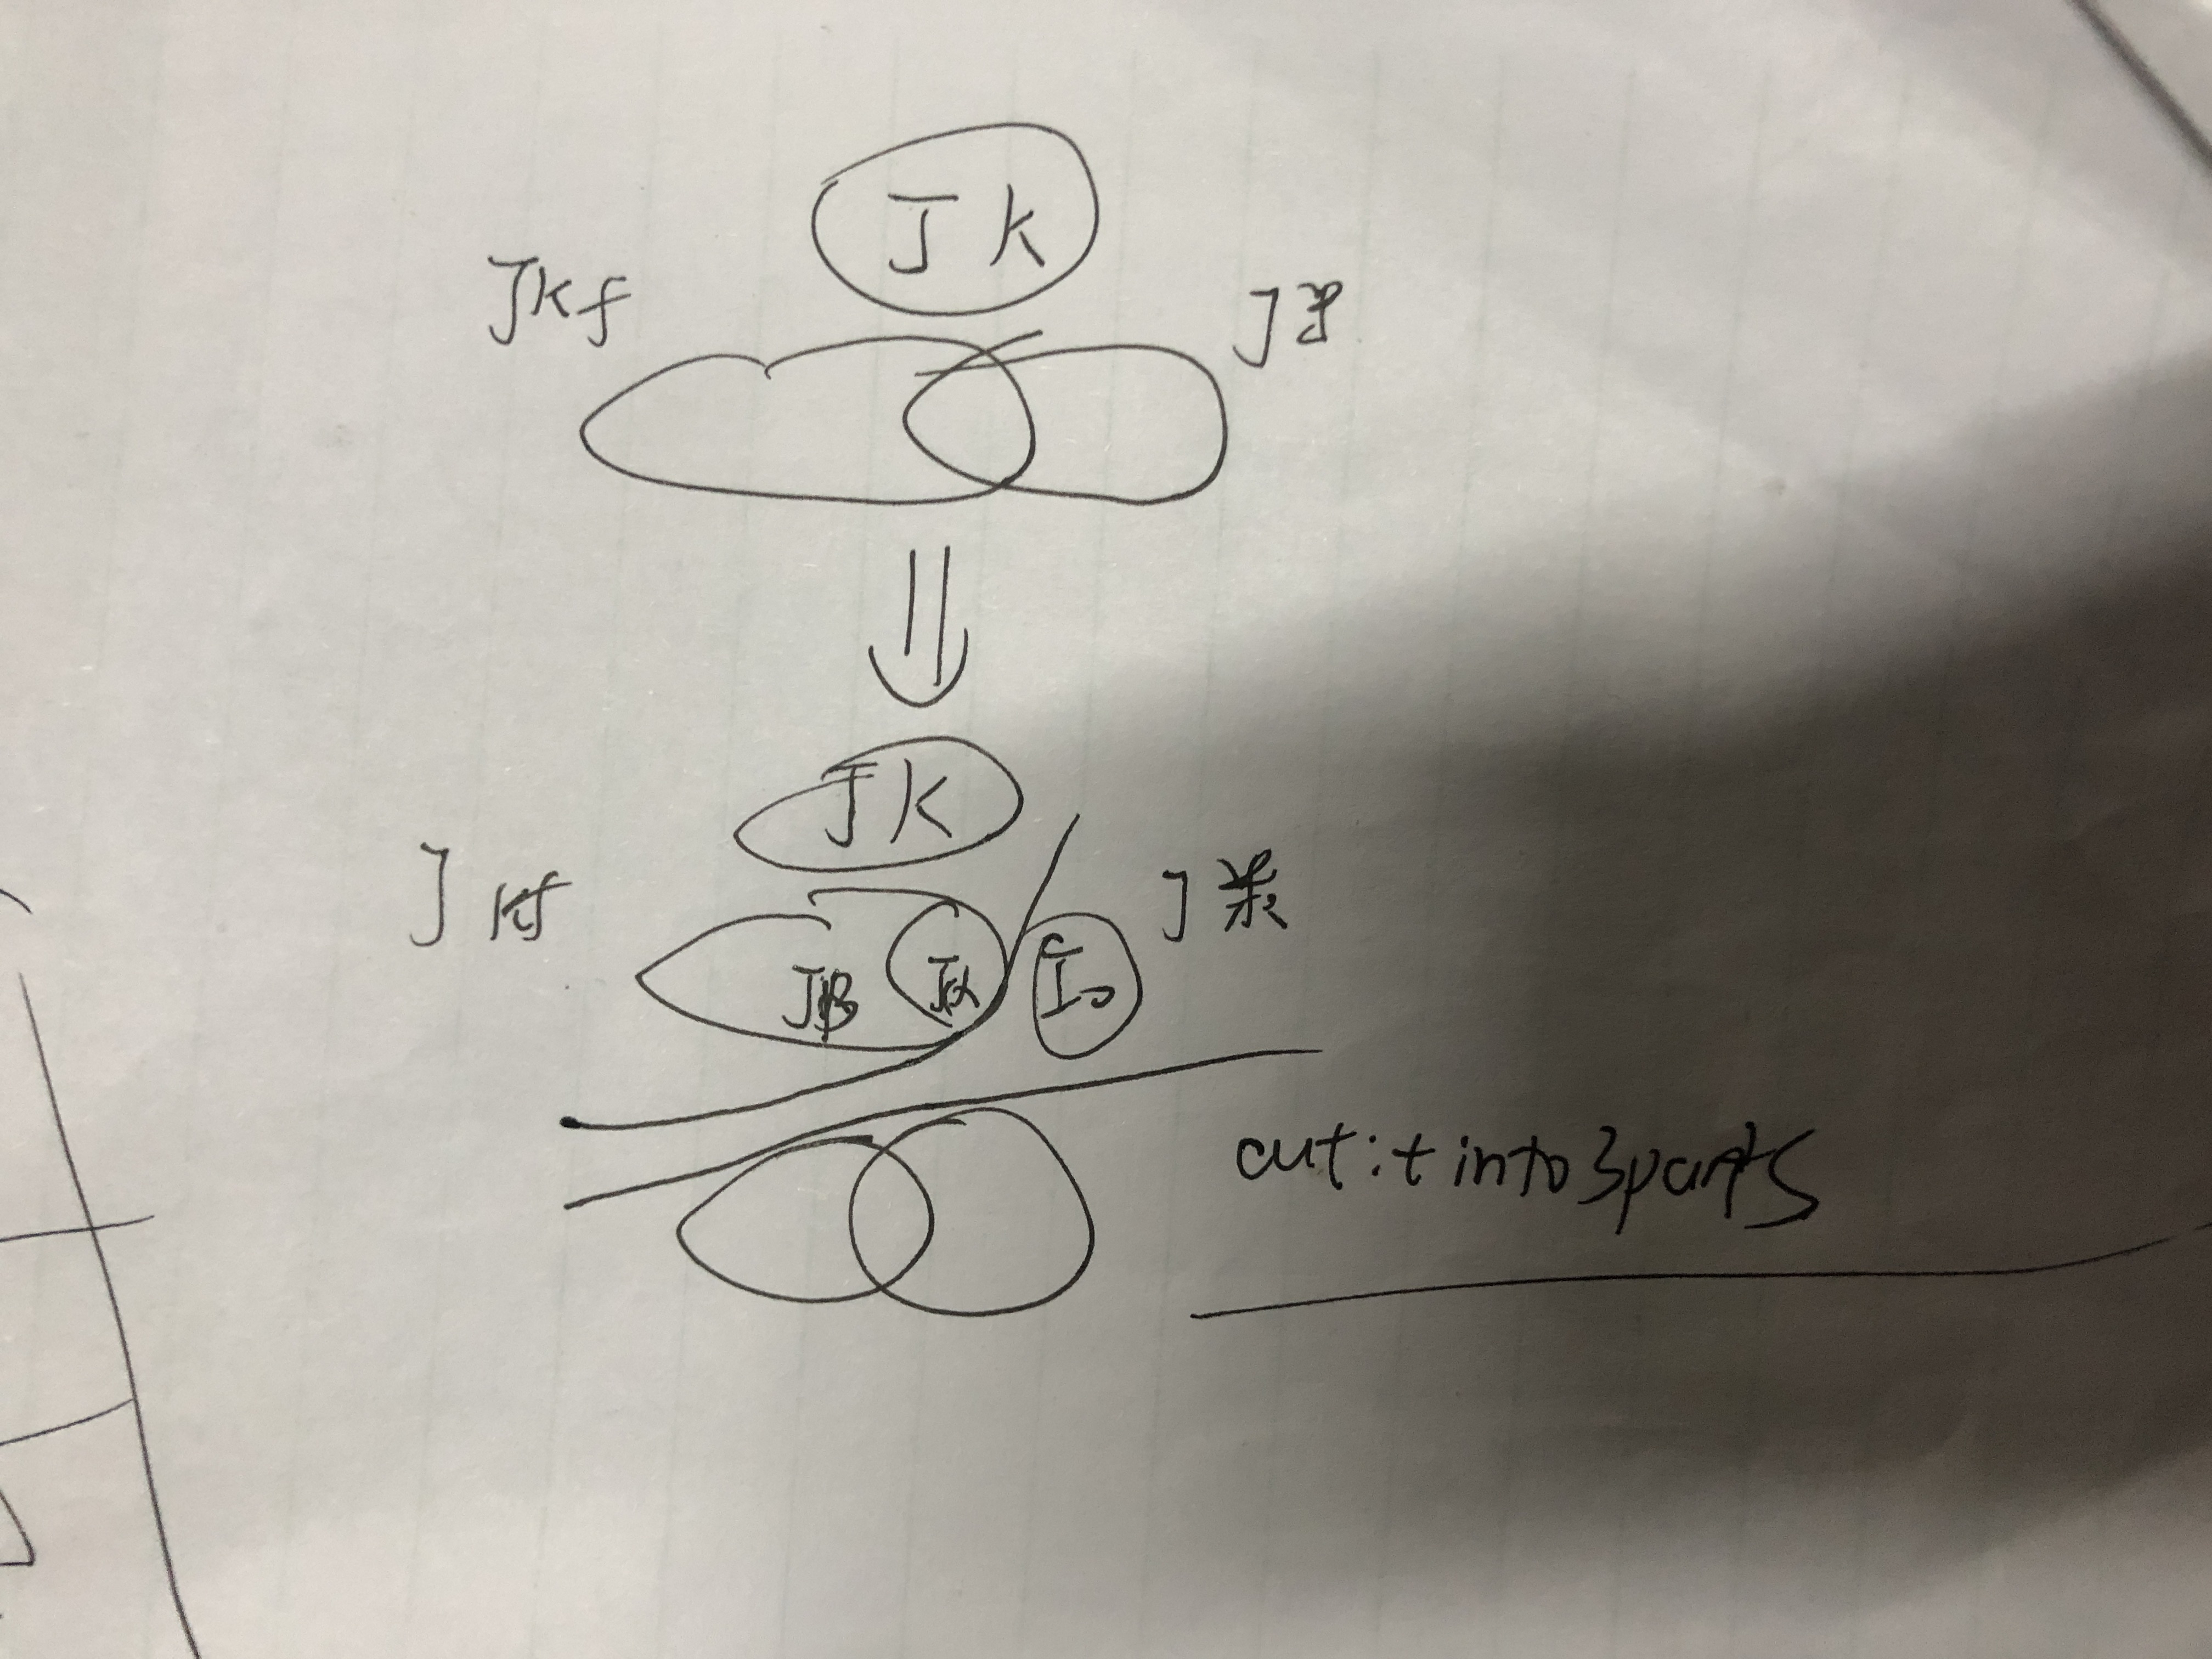 JK
JKf
JK
J
Kf
J
JB
Jα
I0
cut it into 3 parts